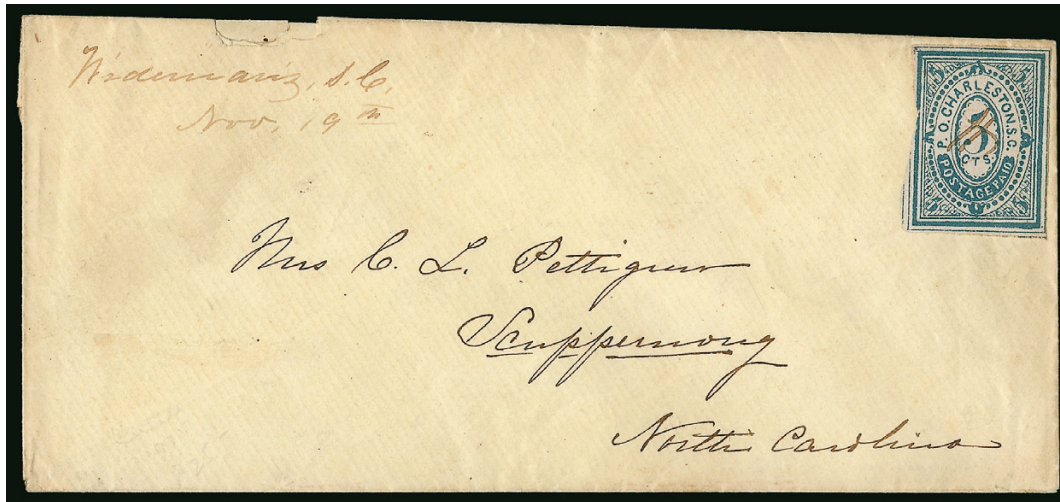 Widemanz, S.C.
Nov, 19th
5 5
P.O. CHARLESTON, S.C.
5
CTS.
POSTAGE PAID
5 5
Mrs C. L. Pettigrew
Scuppernong
North Carolina